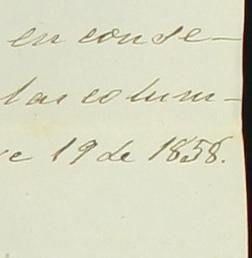 en conse-
las colum-
re 19 de 1858.